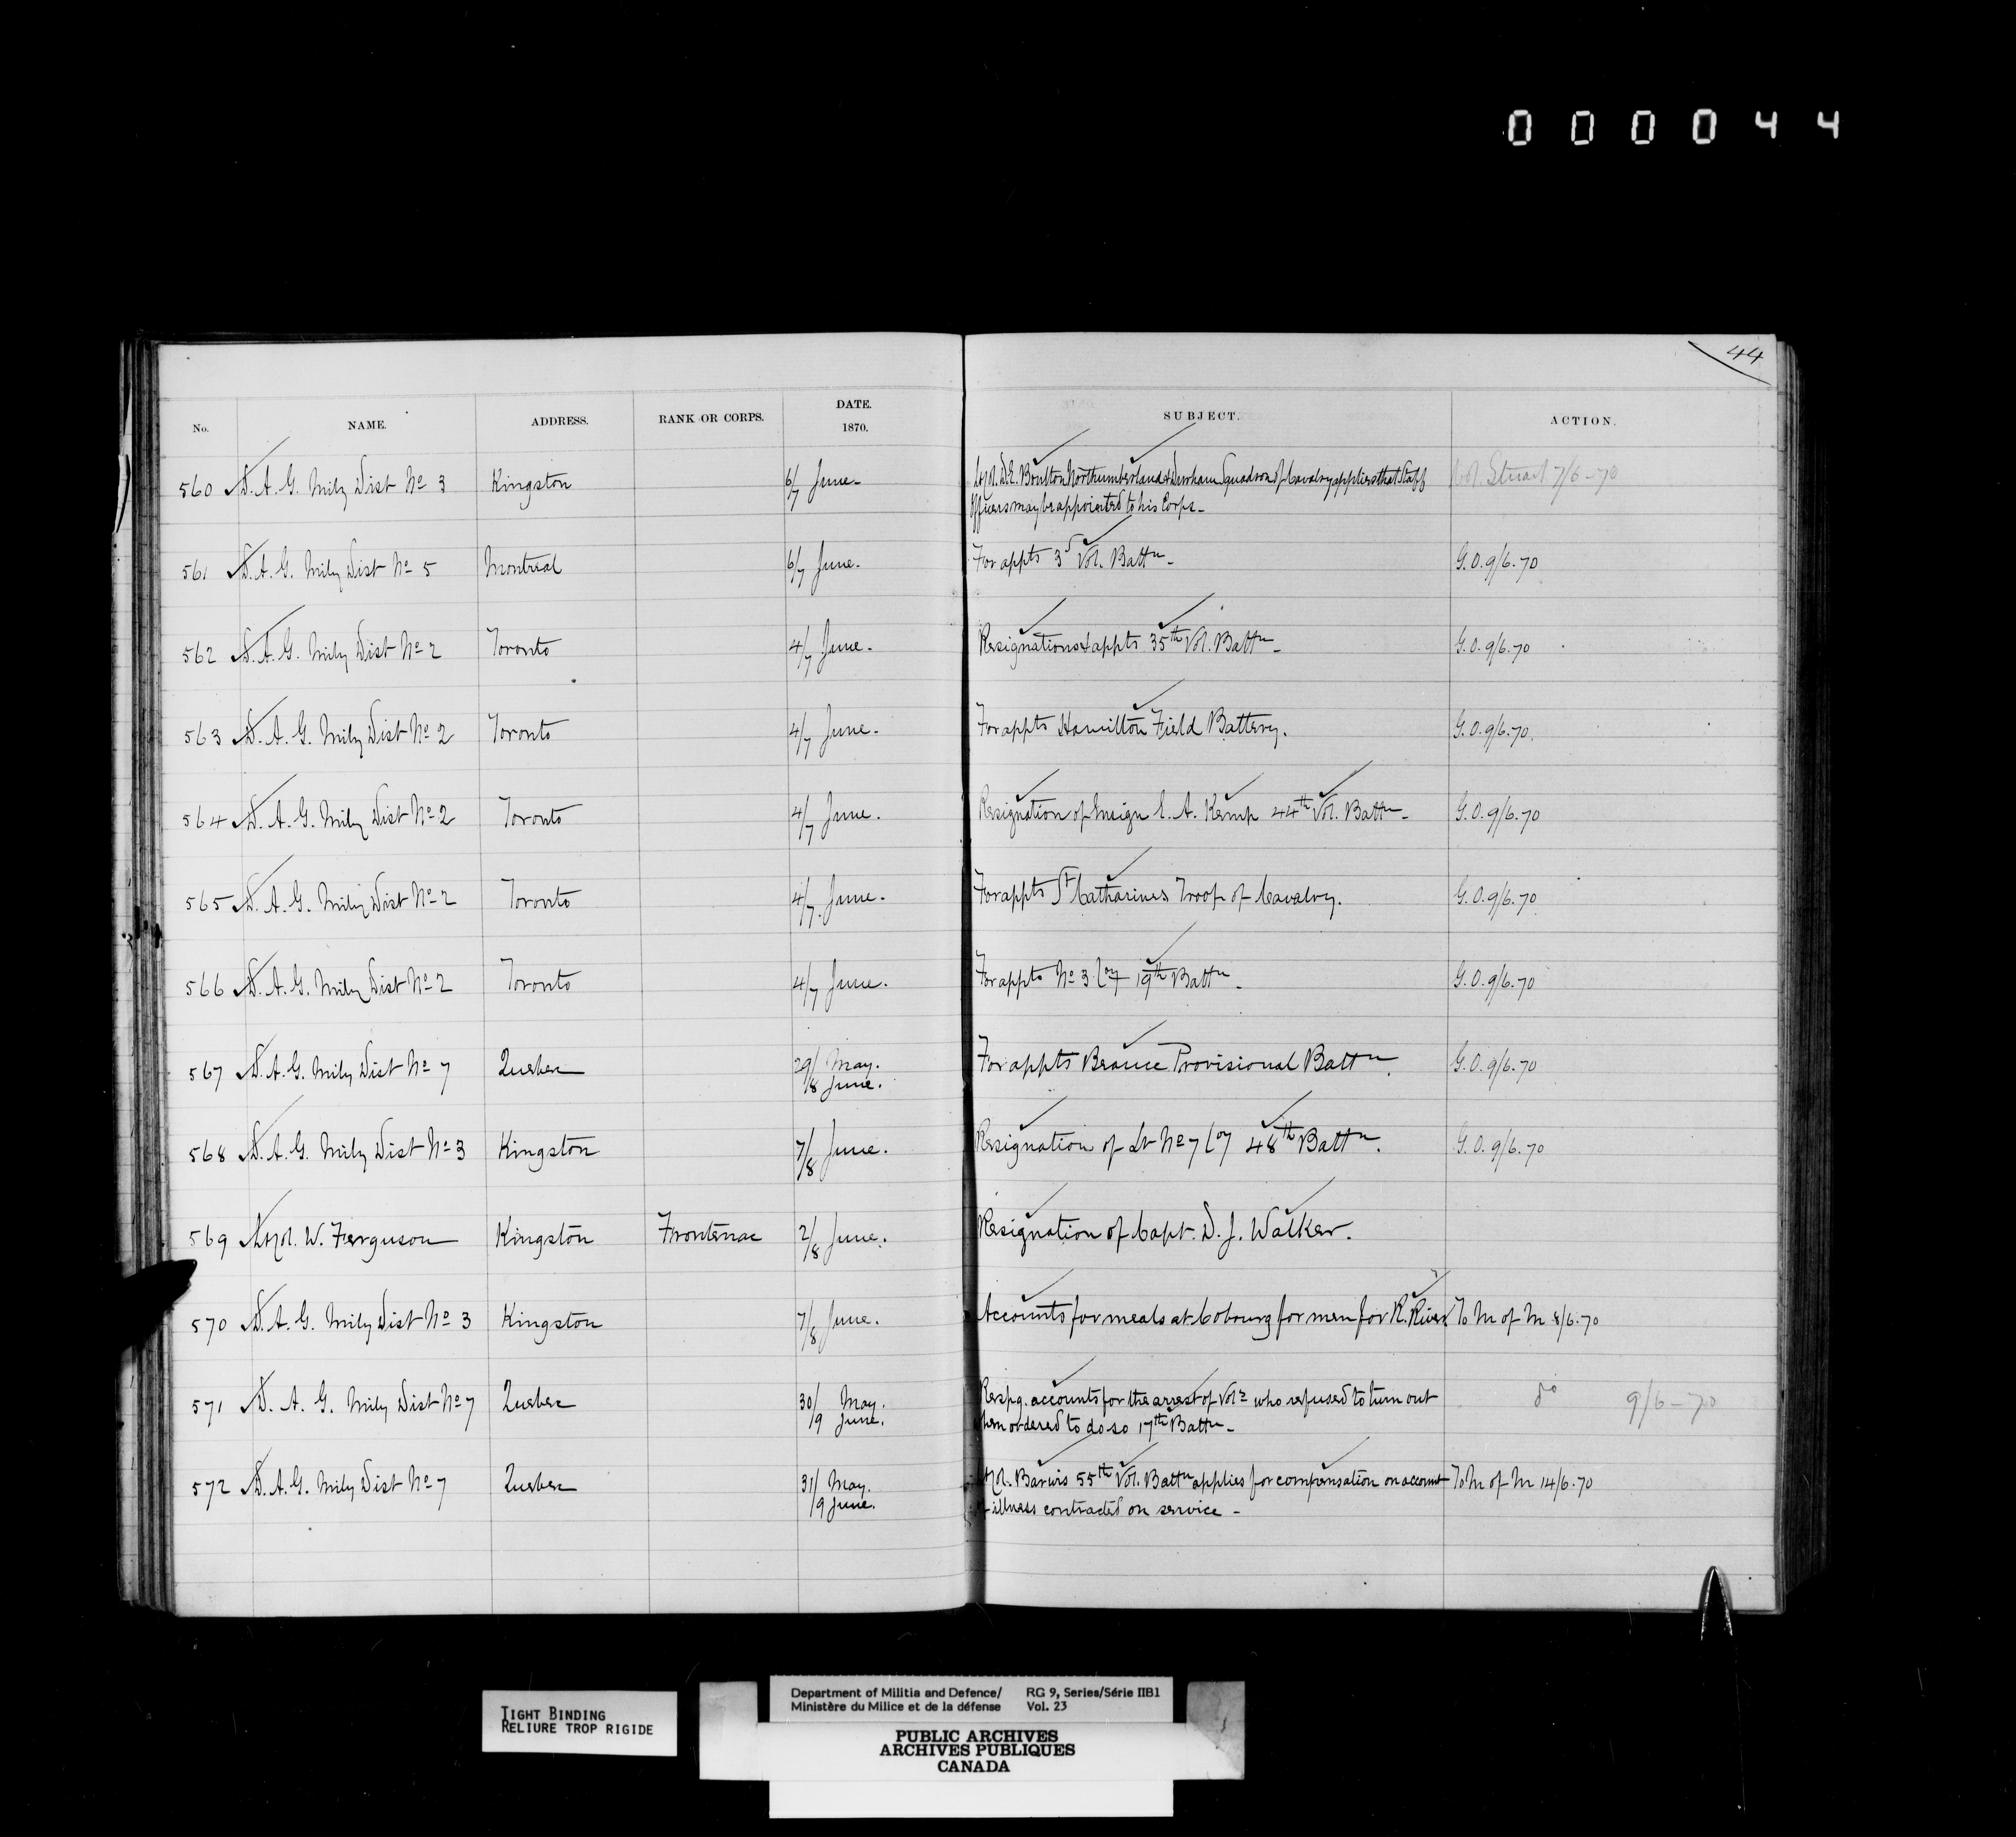 000044
44
No. NAME. ADDRESS. RANK OR CORPS. DATE. 1870. SUBJECT. ACTION.
560 D. A. G. Mily Dist No 3 Kingston 6/7 June - Lt Col. D.E. Boulton Northumberland & Durham Squadron of Cavalry applies that Staff Col. Stuart 7/6-70
Officers may be appointed to his Corps -
561 D. A. G. Mily Dist No 5 Montreal 6/7 June. For appts 3d Vol. Battn - G.O. 9/6.70
562 D. A. G. Mily Dist No 2 Toronto 4/7 June - Resignations & appts 35th Vol. Battn - G.O. 9/6.70
563 D. A. G. Mily Dist No 2 Toronto 4/7 June - For appts Hamilton Field Battery. G.O. 9/6.70.
564 D. A. G. Mily Dist No 2 Toronto 4/7 June. Resignation of Ensign E. A. Kemp 44th Vol. Battn - G.O. 9/6.70
565 D. A. G. Mily Dist No 2 Toronto 4/7. June. For appts St Catharines Troop of Cavalry. G.O. 9/6.70
566 D. A. G. Mily Dist No 2 Toronto 4/7 June. For appts No 3 Coy 19th Battn - G.O. 9/6.70
567 D. A. G. Mily Dist No 7 Quebec 29/ May. For appts Beauce Provisional Battn. G.O. 9/6.70
/8 June.
568 D. A. G. Mily Dist No 3 Kingston 7/8 June. Resignation of Lt No 7 Coy 48th Battn. G.O. 9/6.70
569 Lt Col. W. Ferguson Kingston Frontenac 2/8 June. Resignation of Capt. D. J. Walker.
570 D. A. G. Mily Dist No 3 Kingston 7/8 June. Accounts for meals at Cobourg for men for R. River To M of M 8/6.70
571 D. A. G. Mily Dist No 7 Quebec 30/ May. Respg. accounts for the arrest of Vols who refused to turn out do 9/6-70
/9 June. when ordered to do so 17th Battn -
572 D. A. G. Mily Dist No 7 Quebec 31/ May. Lt Col. Barwis 55th Vol. Battn applies for compensation on account To M of M 14/6.70
/9 June. of illness contracted on service -
TIGHT BINDING
RELIURE TROP RIGIDE
Department of Militia and Defence/ RG 9, Series/Série IIB1
Ministère du Milice et de la défense Vol. 23
PUBLIC ARCHIVES
ARCHIVES PUBLIQUES
CANADA